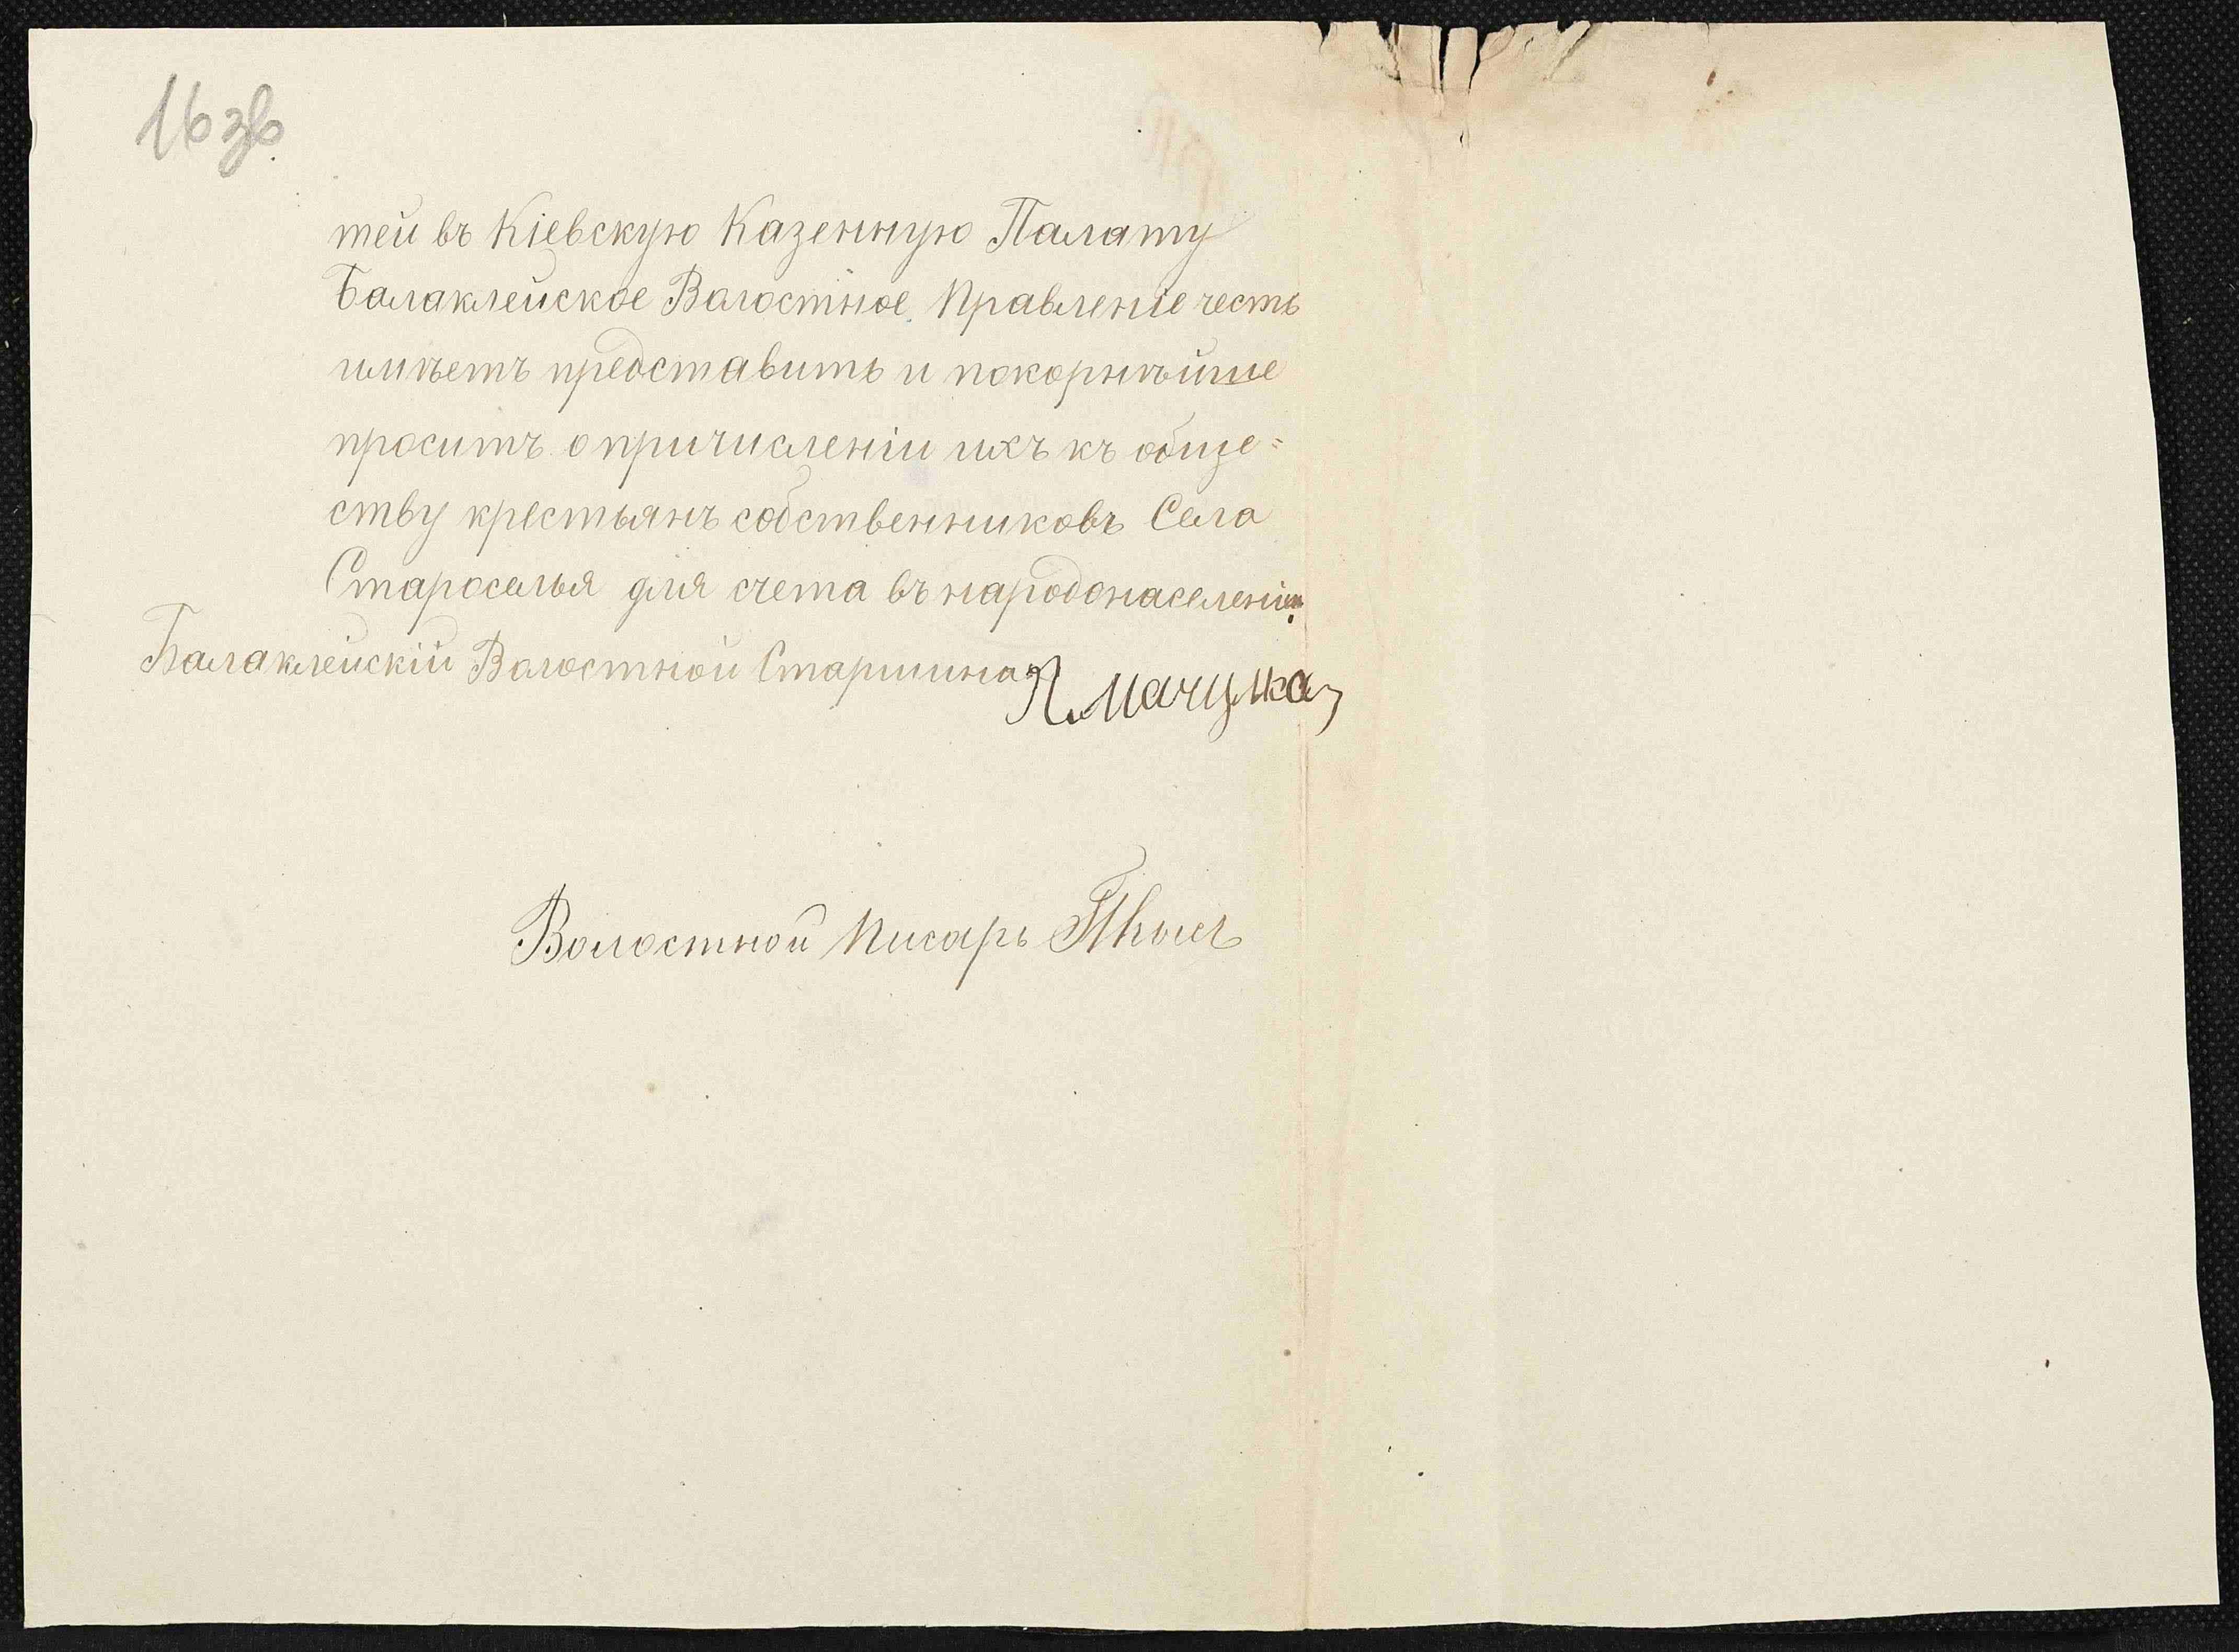 16 зв.
тей въ Кіевскую Казенную Палату
Балаклейское Волостное Правленіе честь
имѣетъ представить и покорнѣйше
проситъ о причисленіи ихъ къ обще=
ству крестьянъ собственниковъ Села
Староселья для счета въ народонаселеніи.
Балаклейскій Волостной Старшина
Волостной Писарь